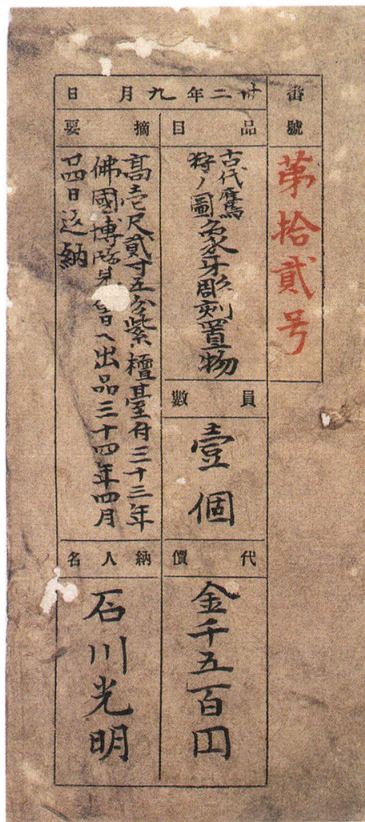 番號
第拾貳号
卅二年九月日
品目
古代鷹
狩ノ圖
象牙彫刻置物
員數
壹個
代價
金千五百円
摘要
高壱尺貳寸五分紫檀臺付三十三年
佛國博覧會へ出品三十四年四月
廿四日返納
納人名
石川光明